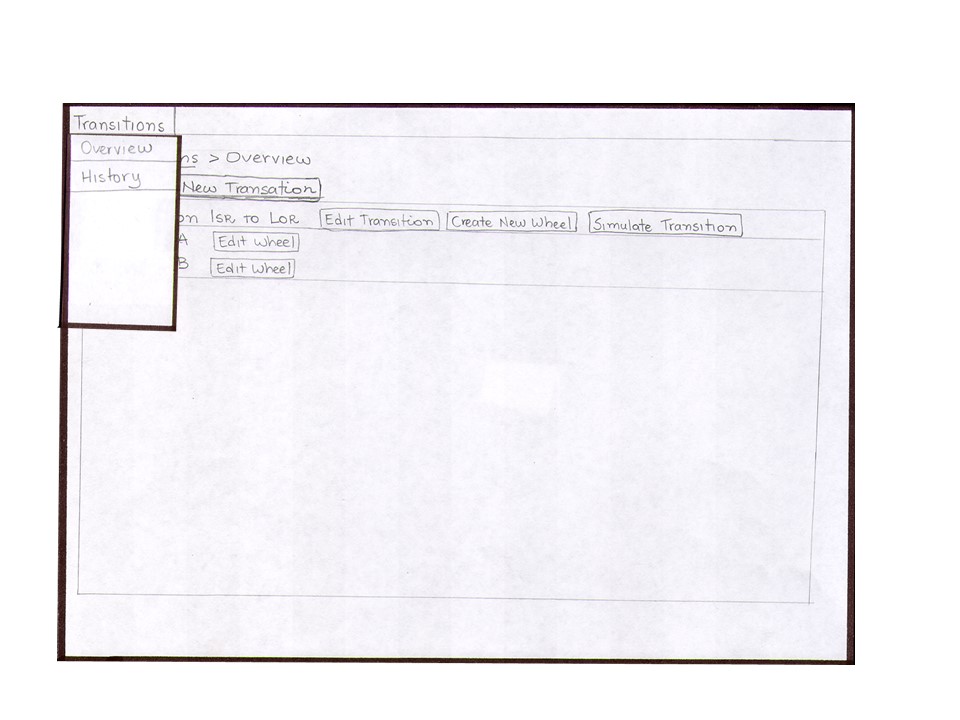 Transitions
Overview
History
ns > Overview
New Transation
on ISR TO LOR Edit Transition Create New Wheel Simulate Transition
A Edit Wheel
B Edit Wheel